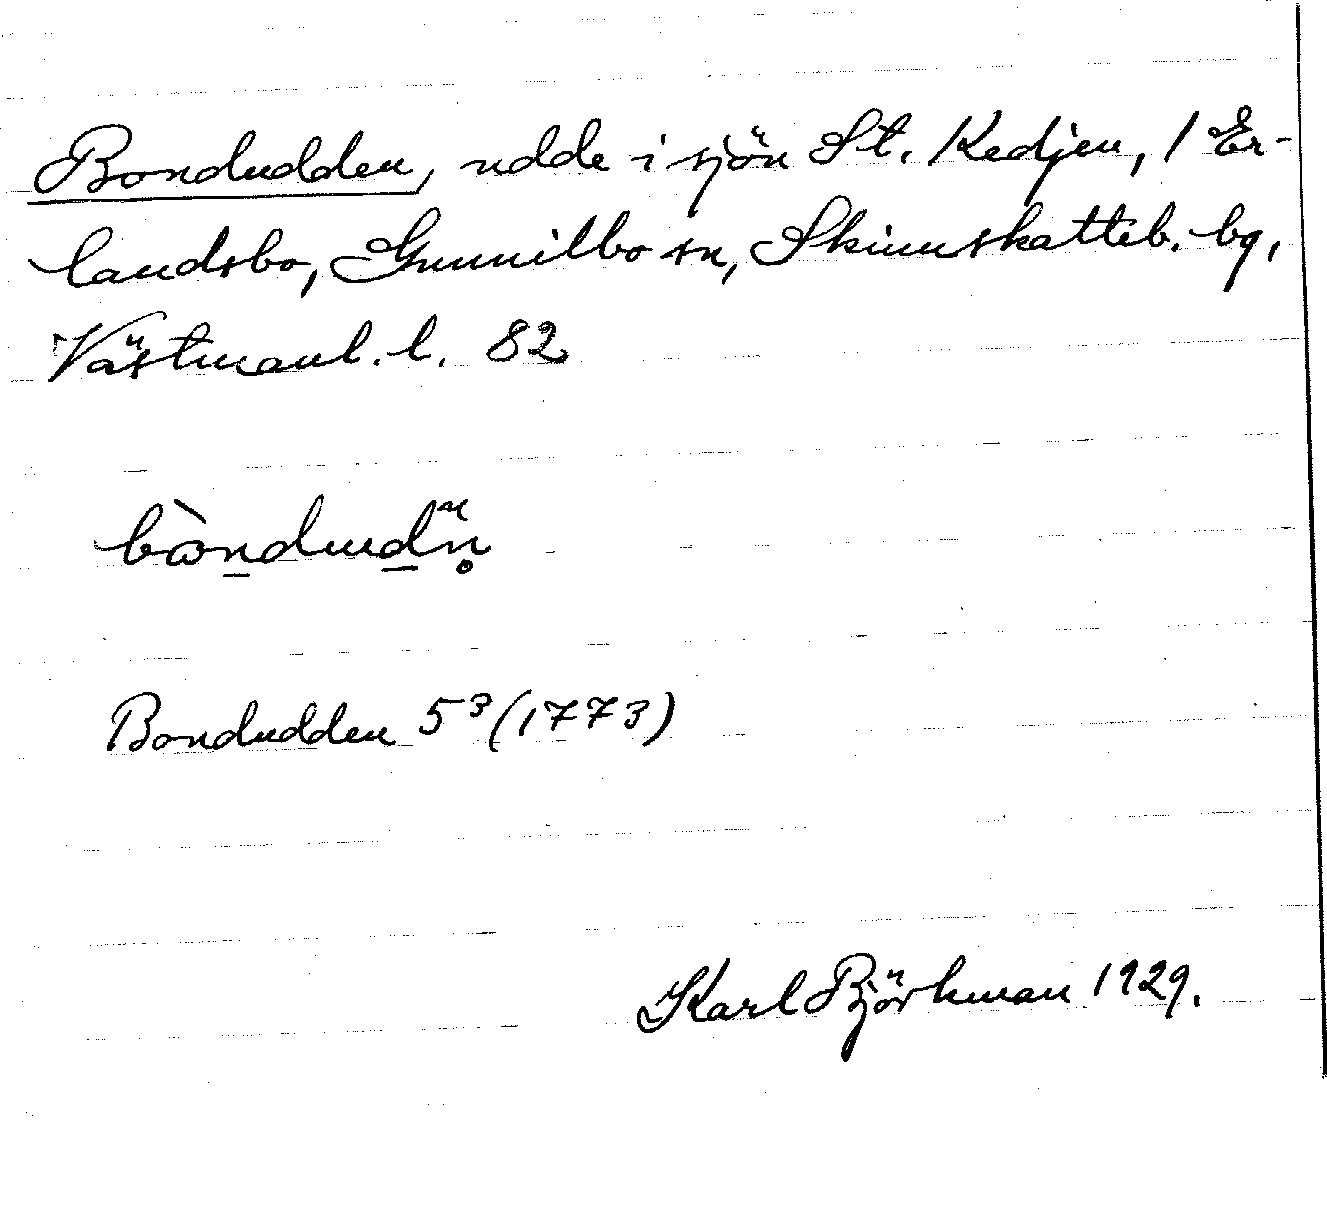 Bondudden, udde i sjön St. Kedjen, 1 Er-
landsbo, Gunnilbo sn, Skinnskatteb. bg,
Västmanl. l. 82
Bondudden 5³ (1773)
Karl Björkman 1929.